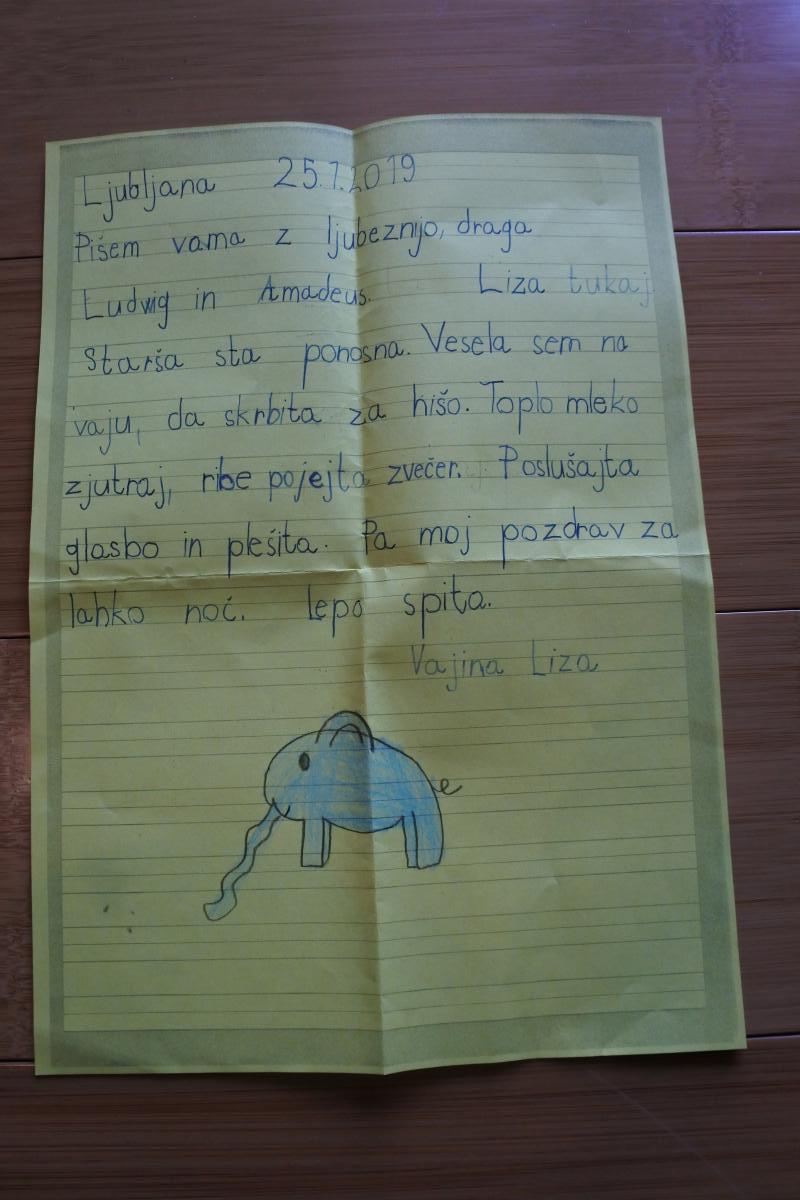 Ljubljana 25.7.2019
Pišem vama z ljubeznijo, draga
Ludwig in Amadeus. Liza tukaj
Starša sta ponosna. Vesela sem na
vaju, da skrbita za hišo. Toplo mleko
zjutraj, ribe pojejta zvečer. Poslušajta
glasbo in plešita. Pa moj pozdrav za
lahko noč. Lepo spita.
Vajina Liza